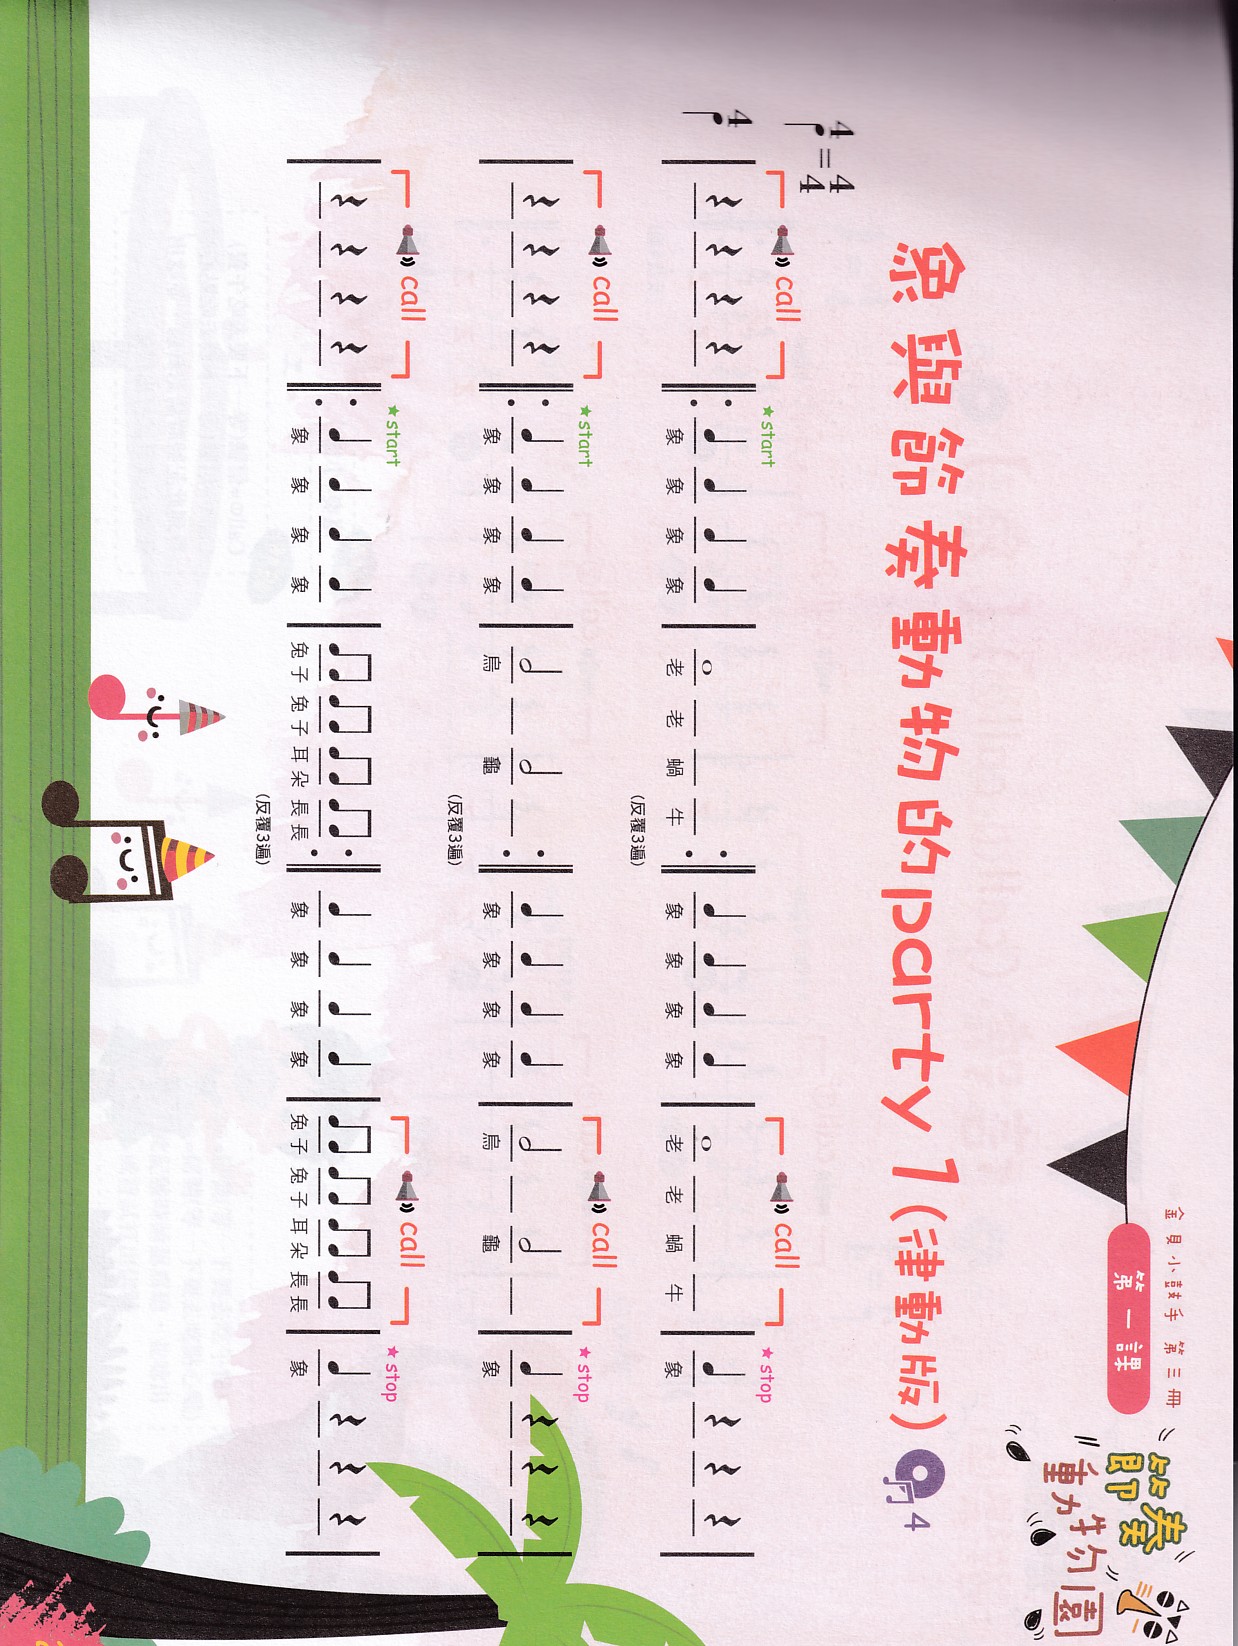 金貝小鼓手 第三冊
第一課
節奏
動物園
魚頭節奏動物的party 1(律動版)
4
4 = 4
4
4
call
★start
call
★stop
象 象 象 象 老 老 蝸 牛 象 象 象 象 老 老 蝸 牛 象
(反覆3遍)
call
★start
call
★stop
象 象 象 象 烏 龜 象 象 象 象 烏 龜 象
(反覆3遍)
call
★start
call
★stop
象 象 象 象 兔子 兔子 耳朵 長長 象 象 象 象 兔子 兔子 耳朵 長長 象
(反覆3遍)